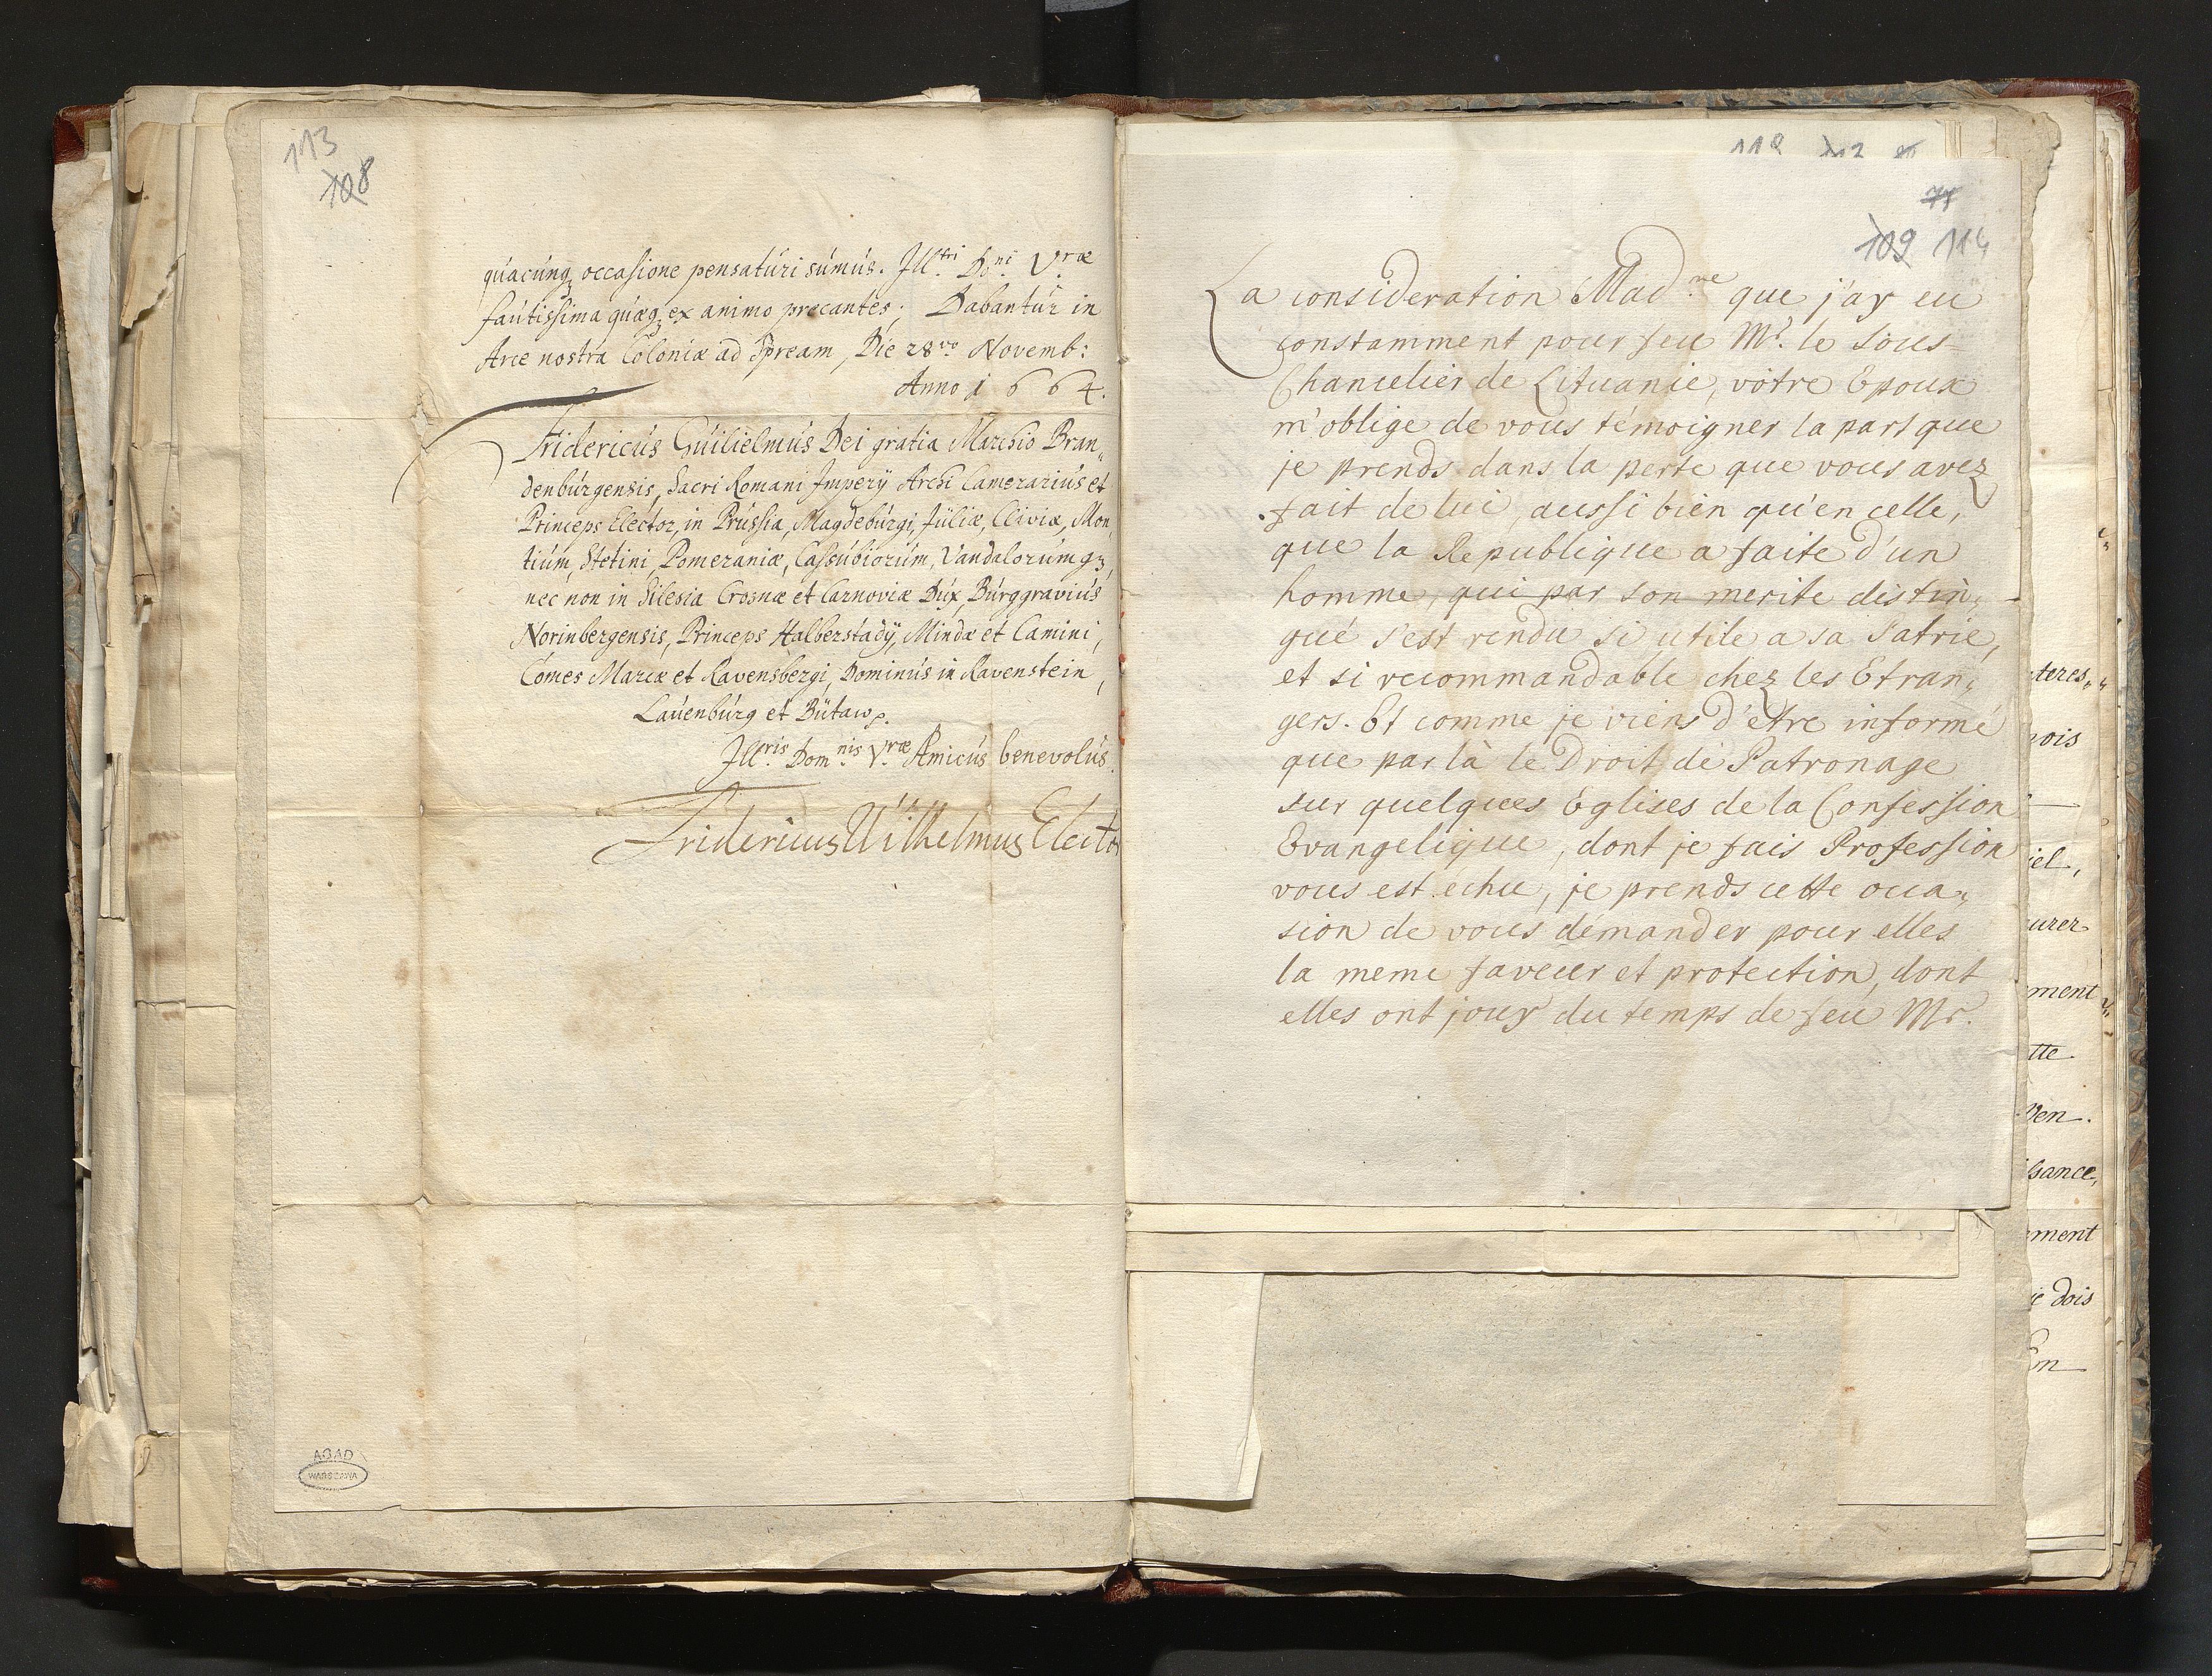 113
108
quacunq; occasione pensaturi sumus. Ill:tri Do:ni V:ræ
fautissima quæq; ex animo precantes; Dabantur in
Arce nostra Coloniæ ad Spream, Die 28:vo Novemb:
Anno 1664.
Fridericus Guilielmus Dei gratia Marchio Bran„
denburgensis, Sacri Romani Imperÿ Archi Camerarius et
Princeps Elector, in Prussia, Magdeburgi, Juliæ, Cliviæ, Mon
tium, Stetini, Pomeraniæ, Cassubiorum, Vandalorumq3,
nec non in Silesia Crosnæ et Carnoviæ Dux, Burggravius
Norinbergensis, Princeps Halberstadÿ, Mindæ et Camini,
Comes Marcæ et Ravensbergi, Dominus in Ravenstein,
Lauenburg et Bütaw
Ill:ris Dom:nis V:ræ Amicus benevolus.
Fridericus Wilhelmus Elector
AGAD
WARSZAWA
109 114
La consideration Mad:me que j'ay eu
constamment pour feu Mr. le Sous-
Chancelier de Lituanie, vôtre Epoux
m'oblige de vous témoigner la part que
je prends dans la perte que vous avez
fait de lui, aussi bien qu'en celle,
que la Republique a faite d'un
homme, qui par son merite distin„
gué s'est rendu si utile a sa Patrie,
et si recommandable chez les Etran„
gers. Et comme je viens d'etre informé
que par là le Droit de Patronage
sur quelques Eglises de la Confession
Evangelique, dont je fais Profession
vous est echu, je prends cette occa„
sion de vous démander pour elles
la meme faveur et protection, dont
elles ont jouy du temps de feu Mr.
teres„
ois
iel,
urer
ment
tte
en.
sance,
ment
je dois
En